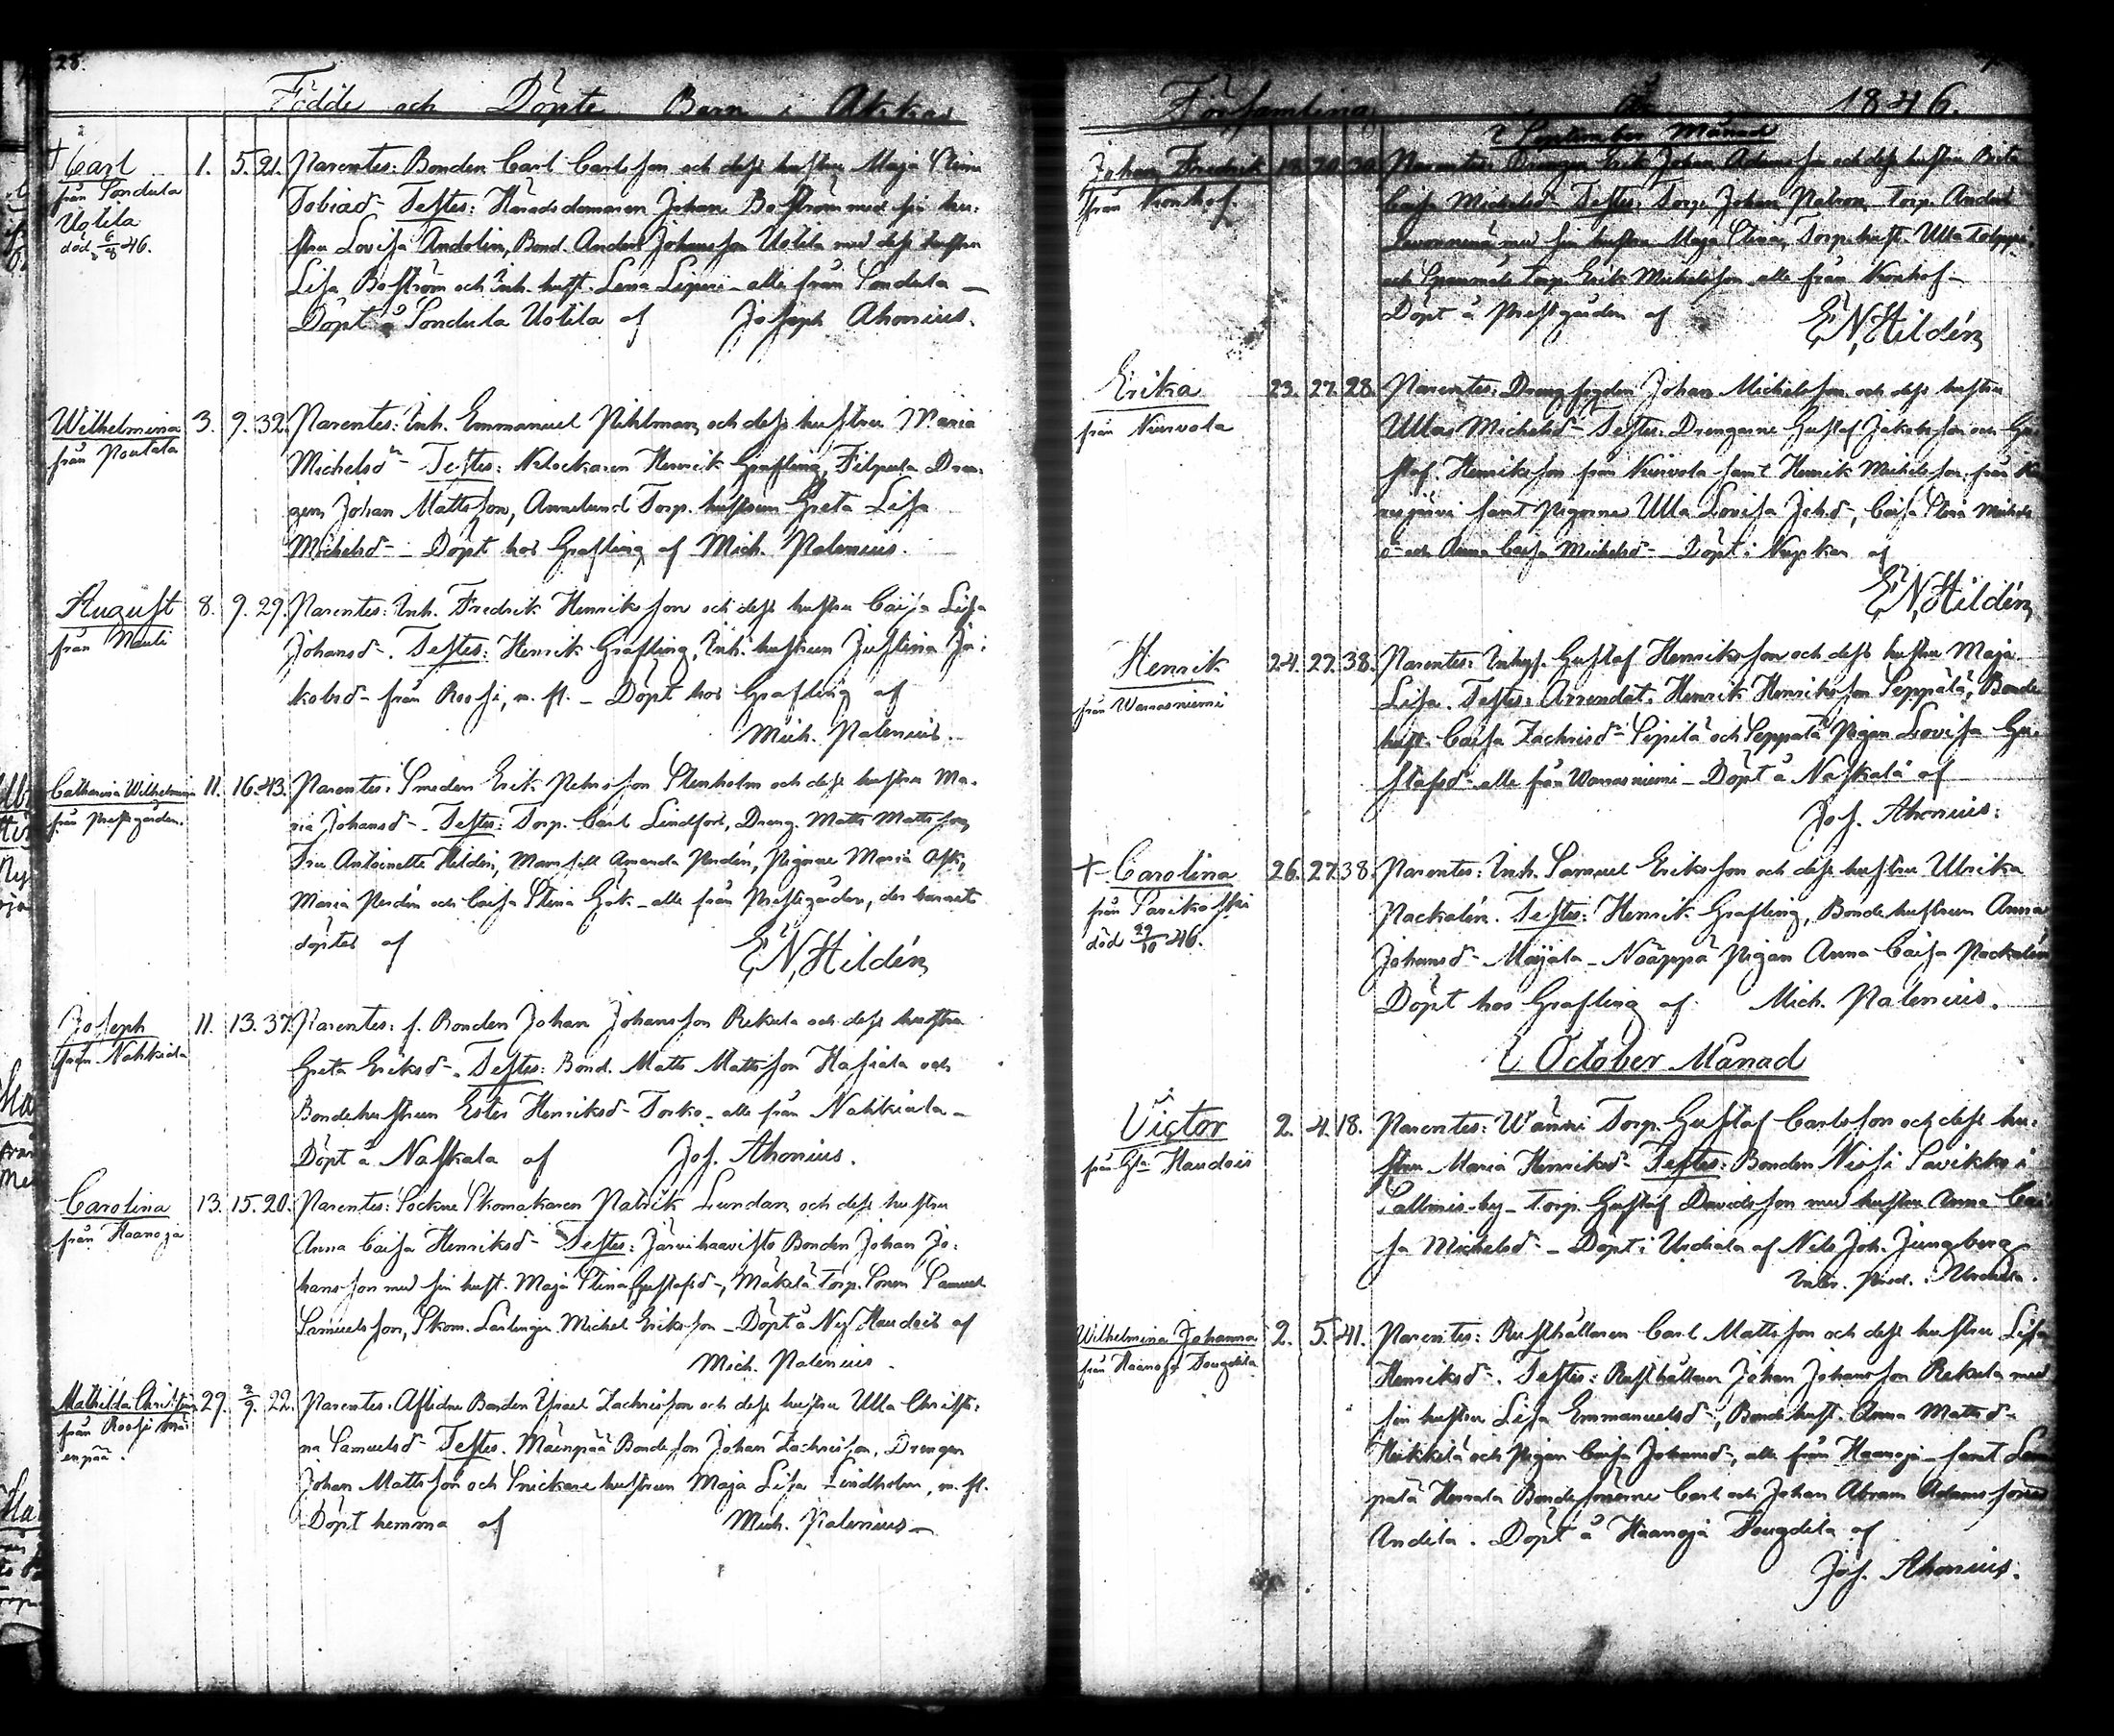 28.
Födde och Döpte Barn i Akkas
† Carl 1. 5. 21. Parentes: Bonden Carl Carlsson och dess hustru Maja Stina
från Sondula Tobiasdr Testes: Häradsdomaren Johan Boström med sin hu-
Uotila stru Lovisa Andolin, Bond. Anders Johansson Uotila med dess hustru
död 6/8 46. Lisa Boström och Inh. hust. Lena Liperi - alla från Sondula -
Döpt å Sondula Uotila af Joseph Ahonius.
Wilhelmina 3. 9. 32. Parentes: Inh. Emmanuel Pihlman, och dess hustru Maria
från Pentala Michelsdr Testes: Klockaren Henrik Grafling, Filpula Dren-
gen Johan Mattsson, Annelund Torp. hustrun Greta Lisa
Michelsdr - Döpt hos Grafling af Mich. Palenius.
August 8. 9. 29. Parentes: Inh. Fredrik Henriksson och dess hustru Caisa Lisa
från Nauli Johansdr. Testes: Henrik Grafling, Inh. hustrun Justina Ja-
kobsdr från Roosi, m. fl. - Döpt hos Grafling af
Mich. Palenius.
Catharina Wilhelmina 11. 16. 43. Parentes: Smeden Erik Pehrsson Stenholm och dess hustru Ma-
från Prestgården. ria Johansdr. Testes: Torp. Carl Lindfors, Dreng. Matts Mattsson,
Fru Antoinette Hildén, Mamsell Amanda Perdén, Pigorne Maria Ask,
Maria Perdén och Caisa Stina Gök - alla från Prestgården, der barnet
döptes af E. N. Hildén
Joseph 11. 13. 37. Parentes: f. Bonden Johan Johansson Rekula och dess hustru
från Nahkiala Greta Eriksdr. Testes: Bond. Matts Mattsson Hasiala och
Bondehustrun Ester Henriksdr Torko - alla från Nahkiala -
Döpt å Naskala af Jos. Ahonius.
Carolina 13. 15. 20. Parentes: Sockne Skomakaren Patrik Lundan och dess hustru
från Haanoja Anna Caisa Henriksdr Testes: Järvihaavisto Bonden Johan Jo-
hansson med sin hust. Maja Stina Gustafsdr, Mäkelä Torp. Sonen Samuel
Samuelsson, Skom. Lärlingen Michel Eriksson - Döpt å Ny Haudois af
Mich. Palenius.
Mathilda Christina 29. 2/9. 22. Parentes: Afsidne Bonden Israel Zachrisson och dess hustru Ulla Christi-
från Roosi Mä- na Samuelsdr Testes. Mäenpää Bondeson Johan Zachrisson, Drengen
enpää. Johan Mattsson och Snickare hustrun Maja Lisa Lindholm, m. fl.
Döpt hemma af Mich. Palenius -
Församling År 1846.
I September Månad
Johan Fredrik 19. 20. 30. Parentes: Drengen Erik Johan Adamsson och dess hustru Brita
från Kronhof. Caisa Michelsdr Testes: Torp. Johan Patron, Torp. Anders
med sin hustru Maja Stina, Torp. hust. Ulla Tolppi
och Torp. Erik Michelsson alla från Kronhof -
Döpt å Prestgården af E. N. Hildén
Erika 23. 27. 28. Parentes: Drengfogden Johan Michelsson och dess hustru
från Kurvola Ulla Michelsdr Testes: Drengarne Gustaf Jakobsson och Gu-
staf Henriksson från Kurvola samt Henrik Michelsson från
samt Pigorne Ulla Lovisa Johsdr, Caisa Stina Michels
dr och Anna Caisa Michelsdr - Döpt i Kyrkan af
E. N. Hildén
Henrik 24. 27. 38. Parentes: Inhys. Gustaf Henriksson och dess hustru Maja
från Warrasniemi Lisa. Testes: Arrendat. Henrik Henriksson Seppälä, Bonde
hust. Caisa Zachrisdr Sipilä och Seppälä Pigan Lovisa Gu-
stafsdr - alla från Warrasniemi - Döpt å Naskala af
Jos. Ahonius.
† Carolina 26. 27. 38. Parentes: Inh. Samuel Eriksson och dess hustru Ulrika
från Parikoski Packalén. Testes: Henrik Grafling, Bondehustrun Anna
död 29/10 46. Johansdr Maijala - Nääppä Pigan Anna Caisa Packalén
Döpt hos Grafling af Mich. Palenius.
I October Månad
Victor 2. 4. 18. Parentes: Wänni Torp. Gustaf Carlsson och dess hu-
från Gla Haudois stru Maria Henriksdr Testes: Bonden Nissi Savikko i
Salmis by - Torp. Gustaf Davidsson med hustru Anna Cai
sa Michelsdr - Döpt i Urdiala af Nils Joh. Ljungberg
Inter. Pred. i Urdiala.
Wilhelmina Johanna 2. 5. 41. Parentes: Rusthållaren Carl Mattsson och dess hustru Lisa
från Haanoja Fougdila Henriksdr. Testes: Rusthållaren Johan Johansson Rekula med
sin hustru Lisa Emmanuelsdr, Bonde hust. Anna Mattsdr
Heikkilä och Pigan Caisa Johansdr, alla från Haanoja - samt
Bondesönerne Carl och Johan Abram Adamssöner
Andila. Döpt å Haanoja Fougdila af
Jos. Ahonius.